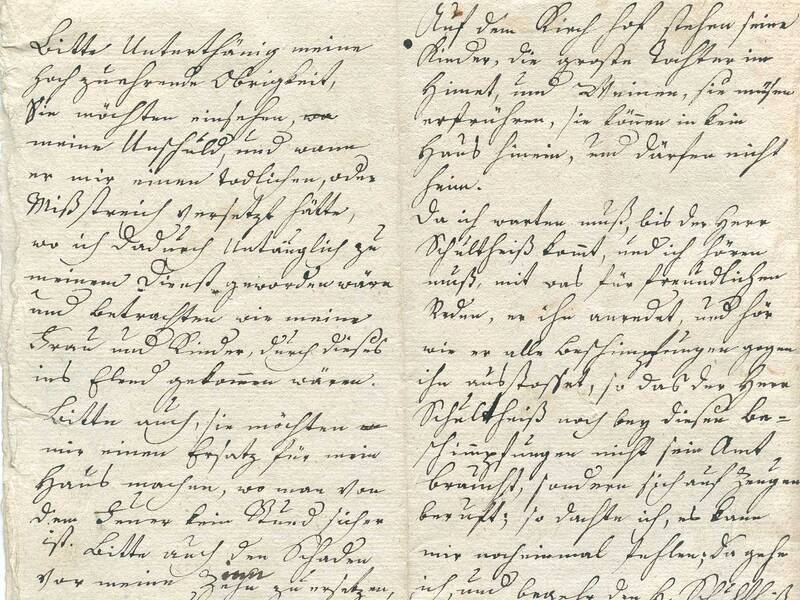 Bitte Unterthänig meine
hoch zuehrende Obrigkeit,
Sie möchten einsehen,
meine Unschuld, und wann
er mir einen todlichen, oder
Mißstreich versetzt hätte,
wo ich dadurch Untauglich zu
meinem Dienst geworden wäre
und betrachten wie meine
Frau und Kinder, durch dieses
ins Elend gekommen wären.
Bitte auch, sie möchten
mir einen Ersatz für mein
Haus machen, wo man vor
dem Feuer kein Stund sicher
ist. Bitte auch den Schaden
vor meine Zehn zu ersetzen,
Auf dem Kirch hof stehen seine
Kinder, die groste Tochter im
Himet, und Weinen, sie müsen
erfrühren, sie können in kein
Haus hinein, und därfen nicht
heim.
Da ich warten muß, bis der Herr
Schultheiß kommt, und ich hören
muß, mit was für freundlichen
Reden, er ihn anredet, und hör
wie er alle Beschimpfungen gegen
ihn ausstosset, so das der Herr
Schultheiß noch bey diesen Be=
schimpfungen nicht sein Amt
braucht, sondern sich auf Zeugen
beruft; so dachte ich, es kann
mir nocheinmal fehlen; da gehe
ich, und begehr den H. Schultheiß